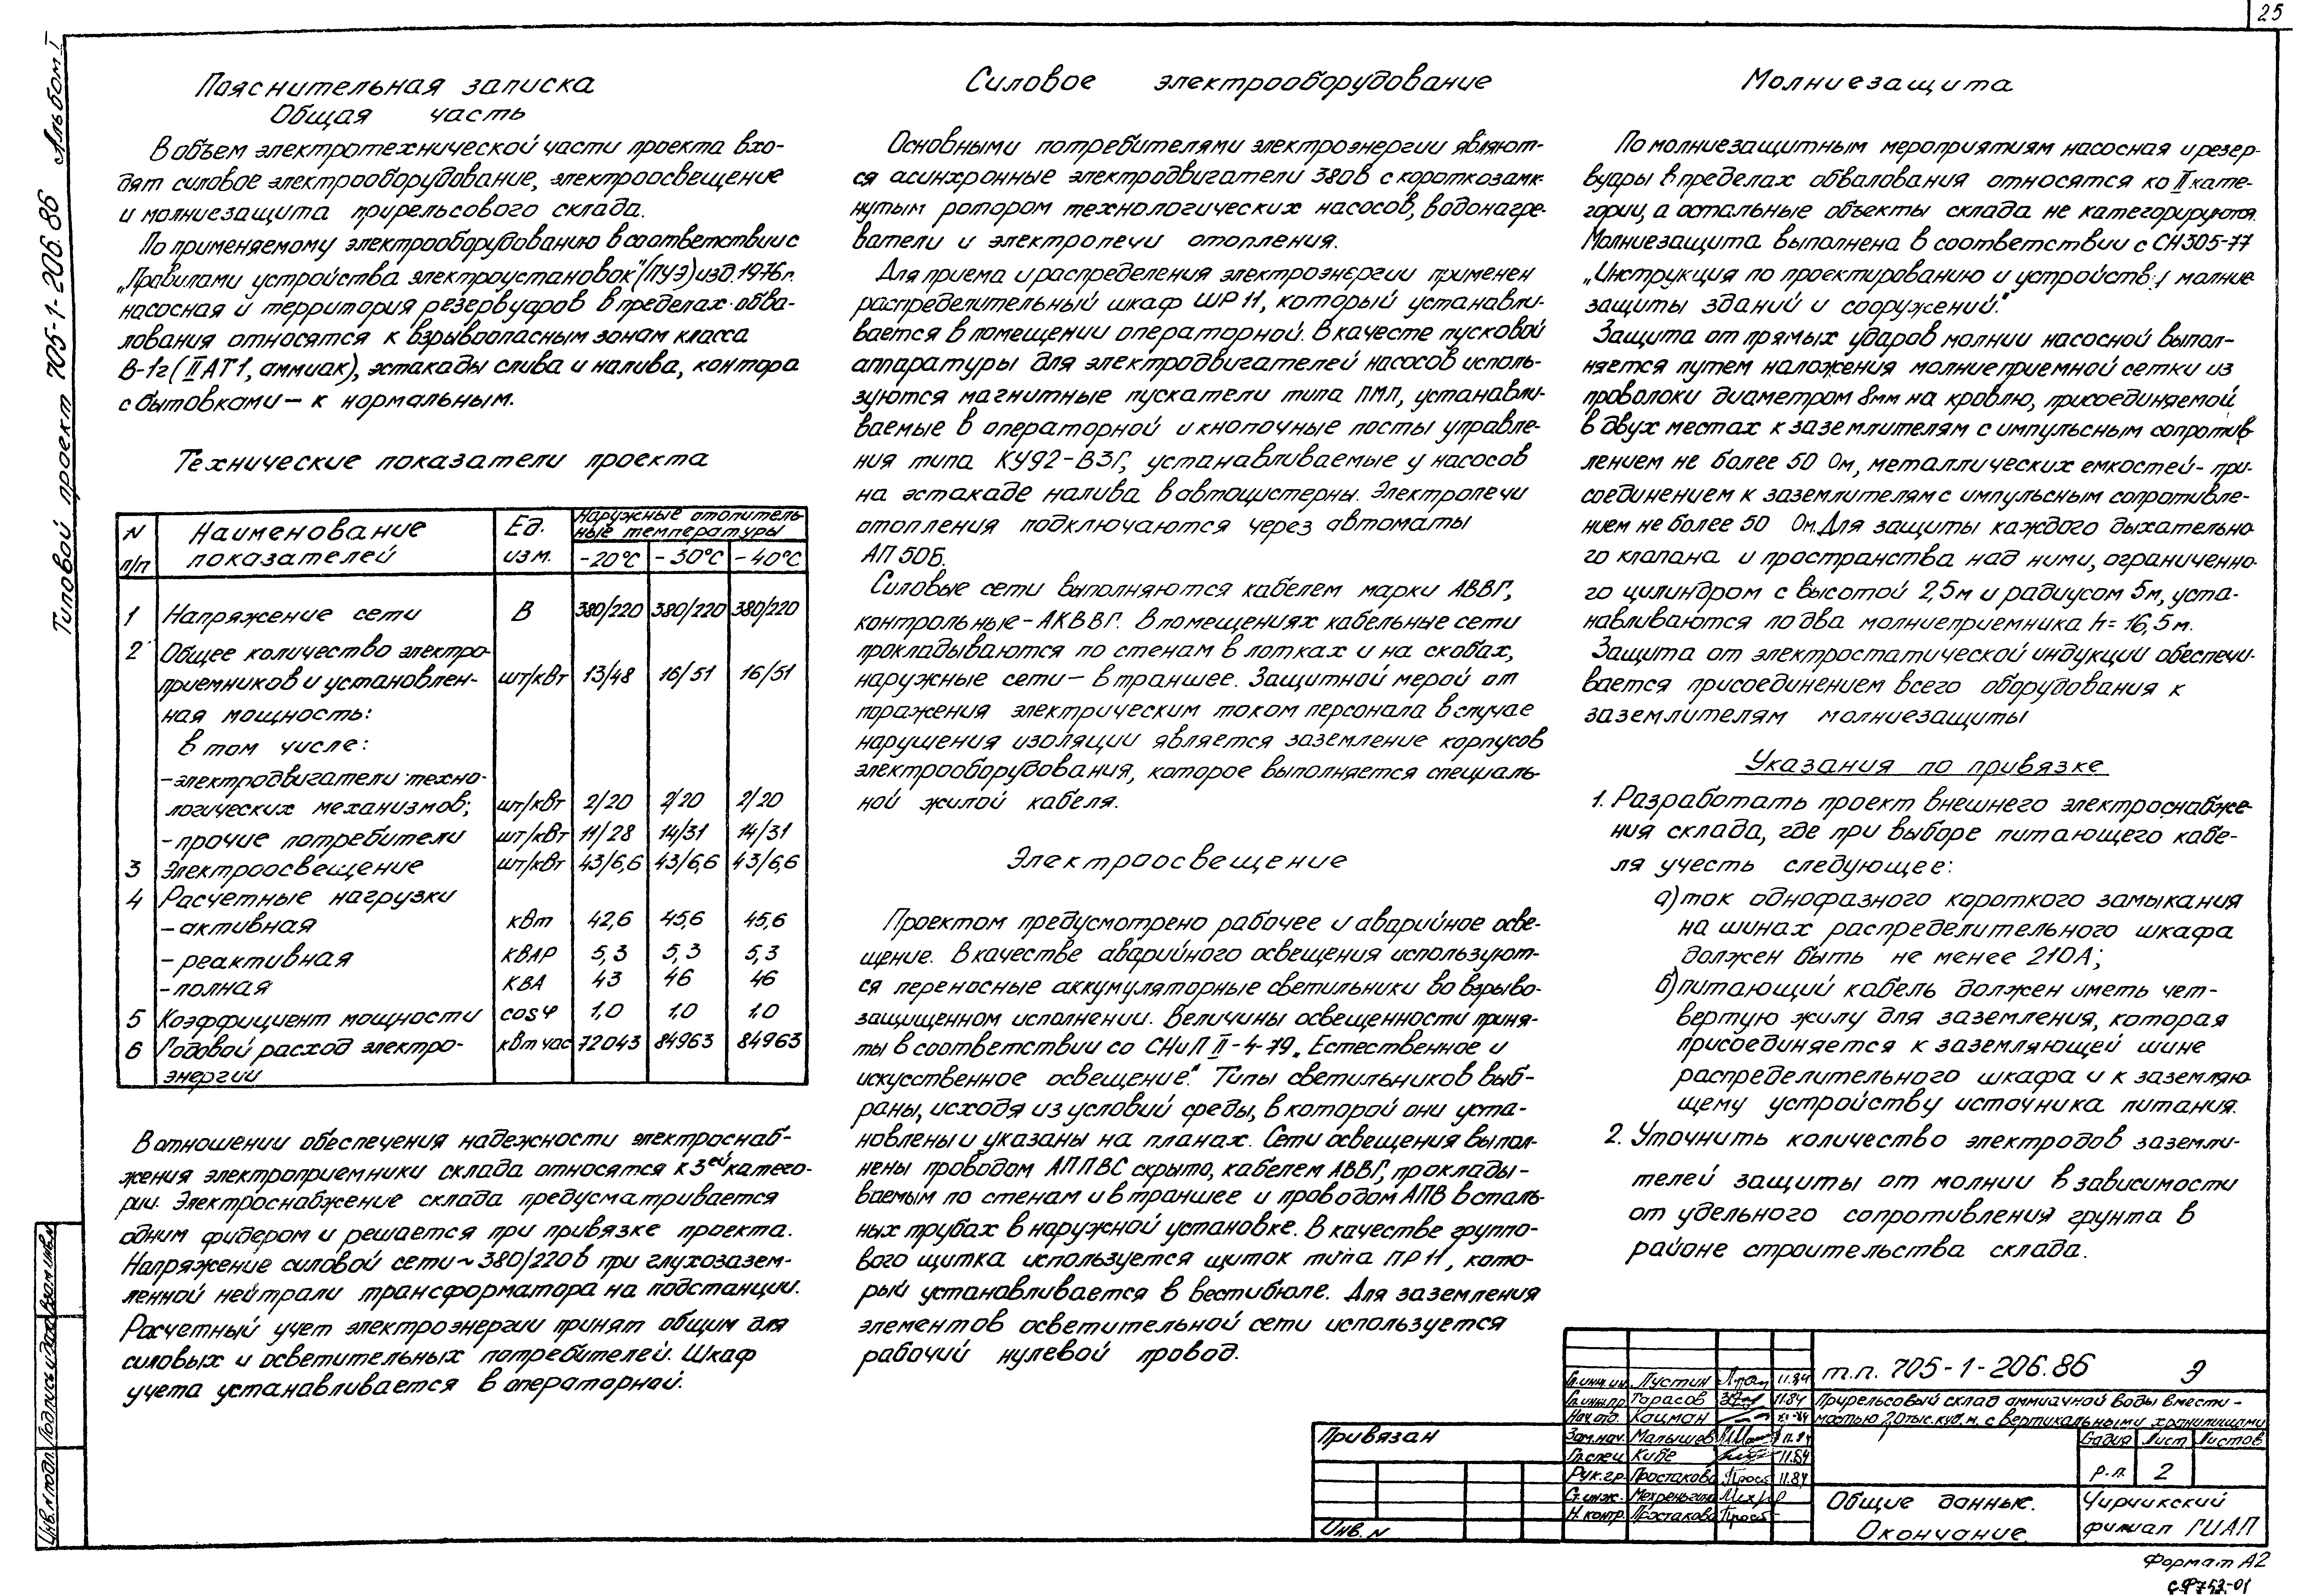 25
Типовой проект 705-1-206.86 Альбом I
Пояснительная записка
Общая часть
В объем электротехнической части проекта вхо-
дят силовое электрооборудование, электроосвещение
и молниезащита прирельсового склада.
По применяемому электрооборудованию в соответствии с
„Правилами устройства электроустановок" (ПУЭ) изд. 1976г.
насосная и территория резервуаров в пределах обва-
лования относятся к взрывоопасным зонам класса
В-1г (II АТ1, аммиак), эстакады слива и налива, контора
с бытовками — к нормальным.
Технические показатели проекта
N п/п | Наименование показателей | Ед. изм. | Наружные отопитель-
ные температуры
-20°С | -30°С | -40°С
1 Напряжение сети В 380/220 380/220 380/220
2 Общее количество электро-
приемников и установлен- шт/квт 13/48 16/51 16/51
ная мощность:
в том числе:
-электродвигатели техно-
логических механизмов; шт/квт 2/20 2/20 2/20
-прочие потребители шт/квт 11/28 14/31 14/31
3 Электроосвещение шт/квт 43/6,6 43/6,6 43/6,6
4 Расчетные нагрузки
-активная квт 42,6 45,6 45,6
-реактивная КВАР 5,3 5,3 5,3
-полная КВА 43 46 46
5 Коэффициент мощности cosφ 1,0 1,0 1,0
6 Годовой расход электро- квт час 72043 84963 84963
энергии
В отношении обеспечения надежности электроснаб-
жения электроприемники склада относятся к 3ей катего-
рии. Электроснабжение склада предусматривается
одним фидером и решается при привязке проекта.
Напряжение силовой сети ~ 380/220в при глухозазем-
ленной нейтрали трансформатора на подстанции.
Расчетный учет электроэнергии принят общим для
силовых и осветительных потребителей. Шкаф
учета устанавливается в операторной.
Силовое электрооборудование
Основными потребителями электроэнергии являют-
ся асинхронные электродвигатели 380в с короткозамк-
нутым ротором технологических насосов, водонагре-
ватели и электропечи отопления.
Для приема и распределения электроэнергии применен
распределительный шкаф ШР 11, который устанавли-
вается в помещении операторной. В качесте пусковой
аппаратуры для электродвигателей насосов исполь-
зуются магнитные пускатели типа ПМЛ, устанавли-
ваемые в операторной и кнопочные посты управле-
ния типа КУ92-ВЗГ, устанавливаемые у насосов
на эстакаде налива в автоцистерны. Электропечи
отопления подключаются через автоматы
АП 50Б.
Силовые сети выполняются кабелем марки АВВГ,
контрольные-АКВВГ. В помещениях кабельные сети
прокладываются по стенам в лотках и на скобах,
наружные сети — в траншее. Защитной мерой от
поражения электрическим током персонала в случае
нарушения изоляции является заземление корпусов
электрооборудования, которое выполняется специаль-
ной жилой кабеля.
Электроосвещение
Проектом предусмотрено рабочее и аварийное осве-
щение. В качестве аварийного освещения используют-
ся переносные аккумуляторные светильники во взрыво-
защищенном исполнении. Величины освещенности приня-
ты в соответствии со СНиП II-4-79 „Естественное и
искусственное освещение". Типы светильников выб-
раны, исходя из условий среды, в которой они уста-
новлены и указаны на планах. Сети освещения выпол-
нены проводом АППВС скрыто, кабелем АВВГ, проклады-
ваемым по стенам и в траншее и проводом АПВ в сталь-
ных трубах в наружной установке. В качестве группо-
вого щитка используется щиток типа ПР11, кото-
рый устанавливается в вестибюле. Для заземления
элементов осветительной сети используется
рабочий нулевой провод.
Молниезащита
По молниезащитным мероприятиям насосная и резер-
вуары в пределах обвалования относятся ко II кате-
гории, а остальные объекты склада не категорируются.
Молниезащита выполнена в соответствии с СН305-77
„Инструкция по проектированию и устройств молние
защиты зданий и сооружений."
Защита от прямых ударов молнии насосной выпол-
няется путем наложения молниеприемной сетки из
проволоки диаметром 8мм на кровлю, присоединяемой
в двух местах к заземлителям с импульсным сопротив-
лением не более 50 Ом, металлических емкостей- при-
соединением к заземлителям с импульсным сопротивле-
нием не более 50 Ом. Для защиты каждого дыхательно-
го клапана и пространства над ними, ограниченно-
го цилиндром с высотой 2,5м и радиусом 5м, уста-
навливаются по два молниеприемника h= 16,5м.
Защита от электростатической индукции обеспечи-
вается присоединением всего оборудования к
заземлителям молниезащиты
Указания по привязке
1. Разработать проект внешнего электроснабже-
ния склада, где при выборе питающего кабе-
ля учесть следующее:
а) ток однофазного короткого замыкания
на шинах распределительного шкафа
должен быть не менее 210А;
б) питающий кабель должен иметь чет-
вертую жилу для заземления, которая
присоединяется к заземляющей шине
распределительного шкафа и к заземляю-
щему устройству источника питания.
2. Уточнить количество электродов заземли-
телей защиты от молнии в зависимости
от удельного сопротивления грунта в
районе строительства склада.
Привязан
Инв. N
Гл.инж.ин. Пустин 11.84
Гл.инж.пр. Тарасов 11.84
Нач.отд. Кацман
Зам.нач. Малышев 11.84
Гл.спец. Кибе 11.84
Рук.гр. Простакова 11.84
Ст.инж.
Н.контр. Простакова
т.п. 705-1-206.86 Э
Прирельсовый склад аммиачной воды вмести-
мостью 2,0 тыс. куб. м. с вертикальными хранилищами
Стадия Лист Листов
р.п. 2
Общие данные.
Окончание.
Чирчикский
филиал ГИАП
Инв.N подл. Подпись и дата Взам.инв.N
Формат А2
СФ753-01